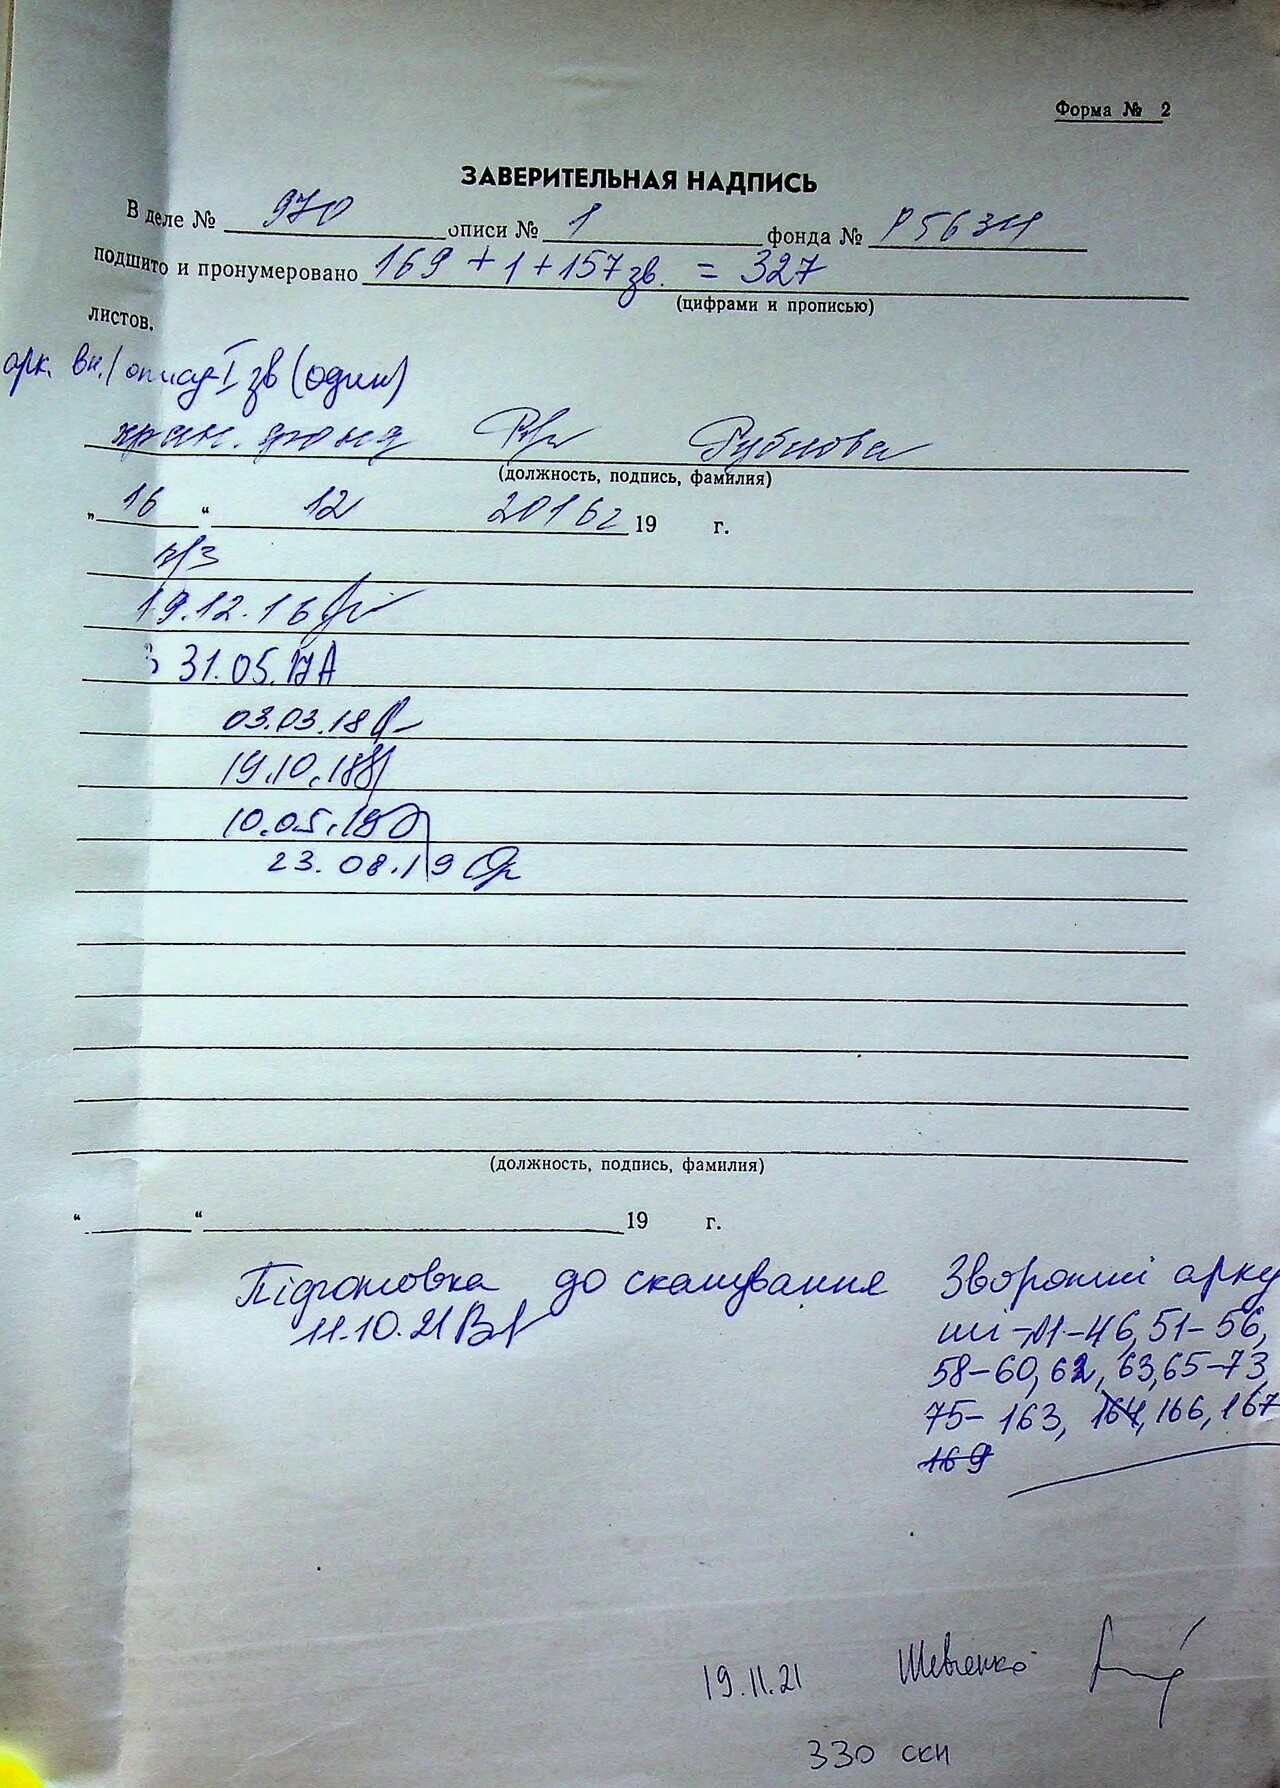 Форма № 2
ЗАВЕРИТЕЛЬНАЯ НАДПИСЬ
В деле № 970 описи № 1 фонда № Р5634
подшито и пронумеровано 169 + 1 + 157 зв. = 327
(цифрами и прописью)
листов.
арк. вн./опису-1 зв (один)
хран. фонд Рубцова
(должность, подпись, фамилия)
„ 16 “ 12 2016г 19 г.
19.12.16
31.05.17
03.03.18
19.10.18
10.05.19
23.08.19
(должность, подпись, фамилия)
“ “ 19 г.
Підготовка до сканування
11.10.21
Зворотний арку
ші - 46, 51-56,
58-60, 62, 63, 65-73,
75-163, 164, 166, 167
169
19.11.21 Шевченко
330 скн